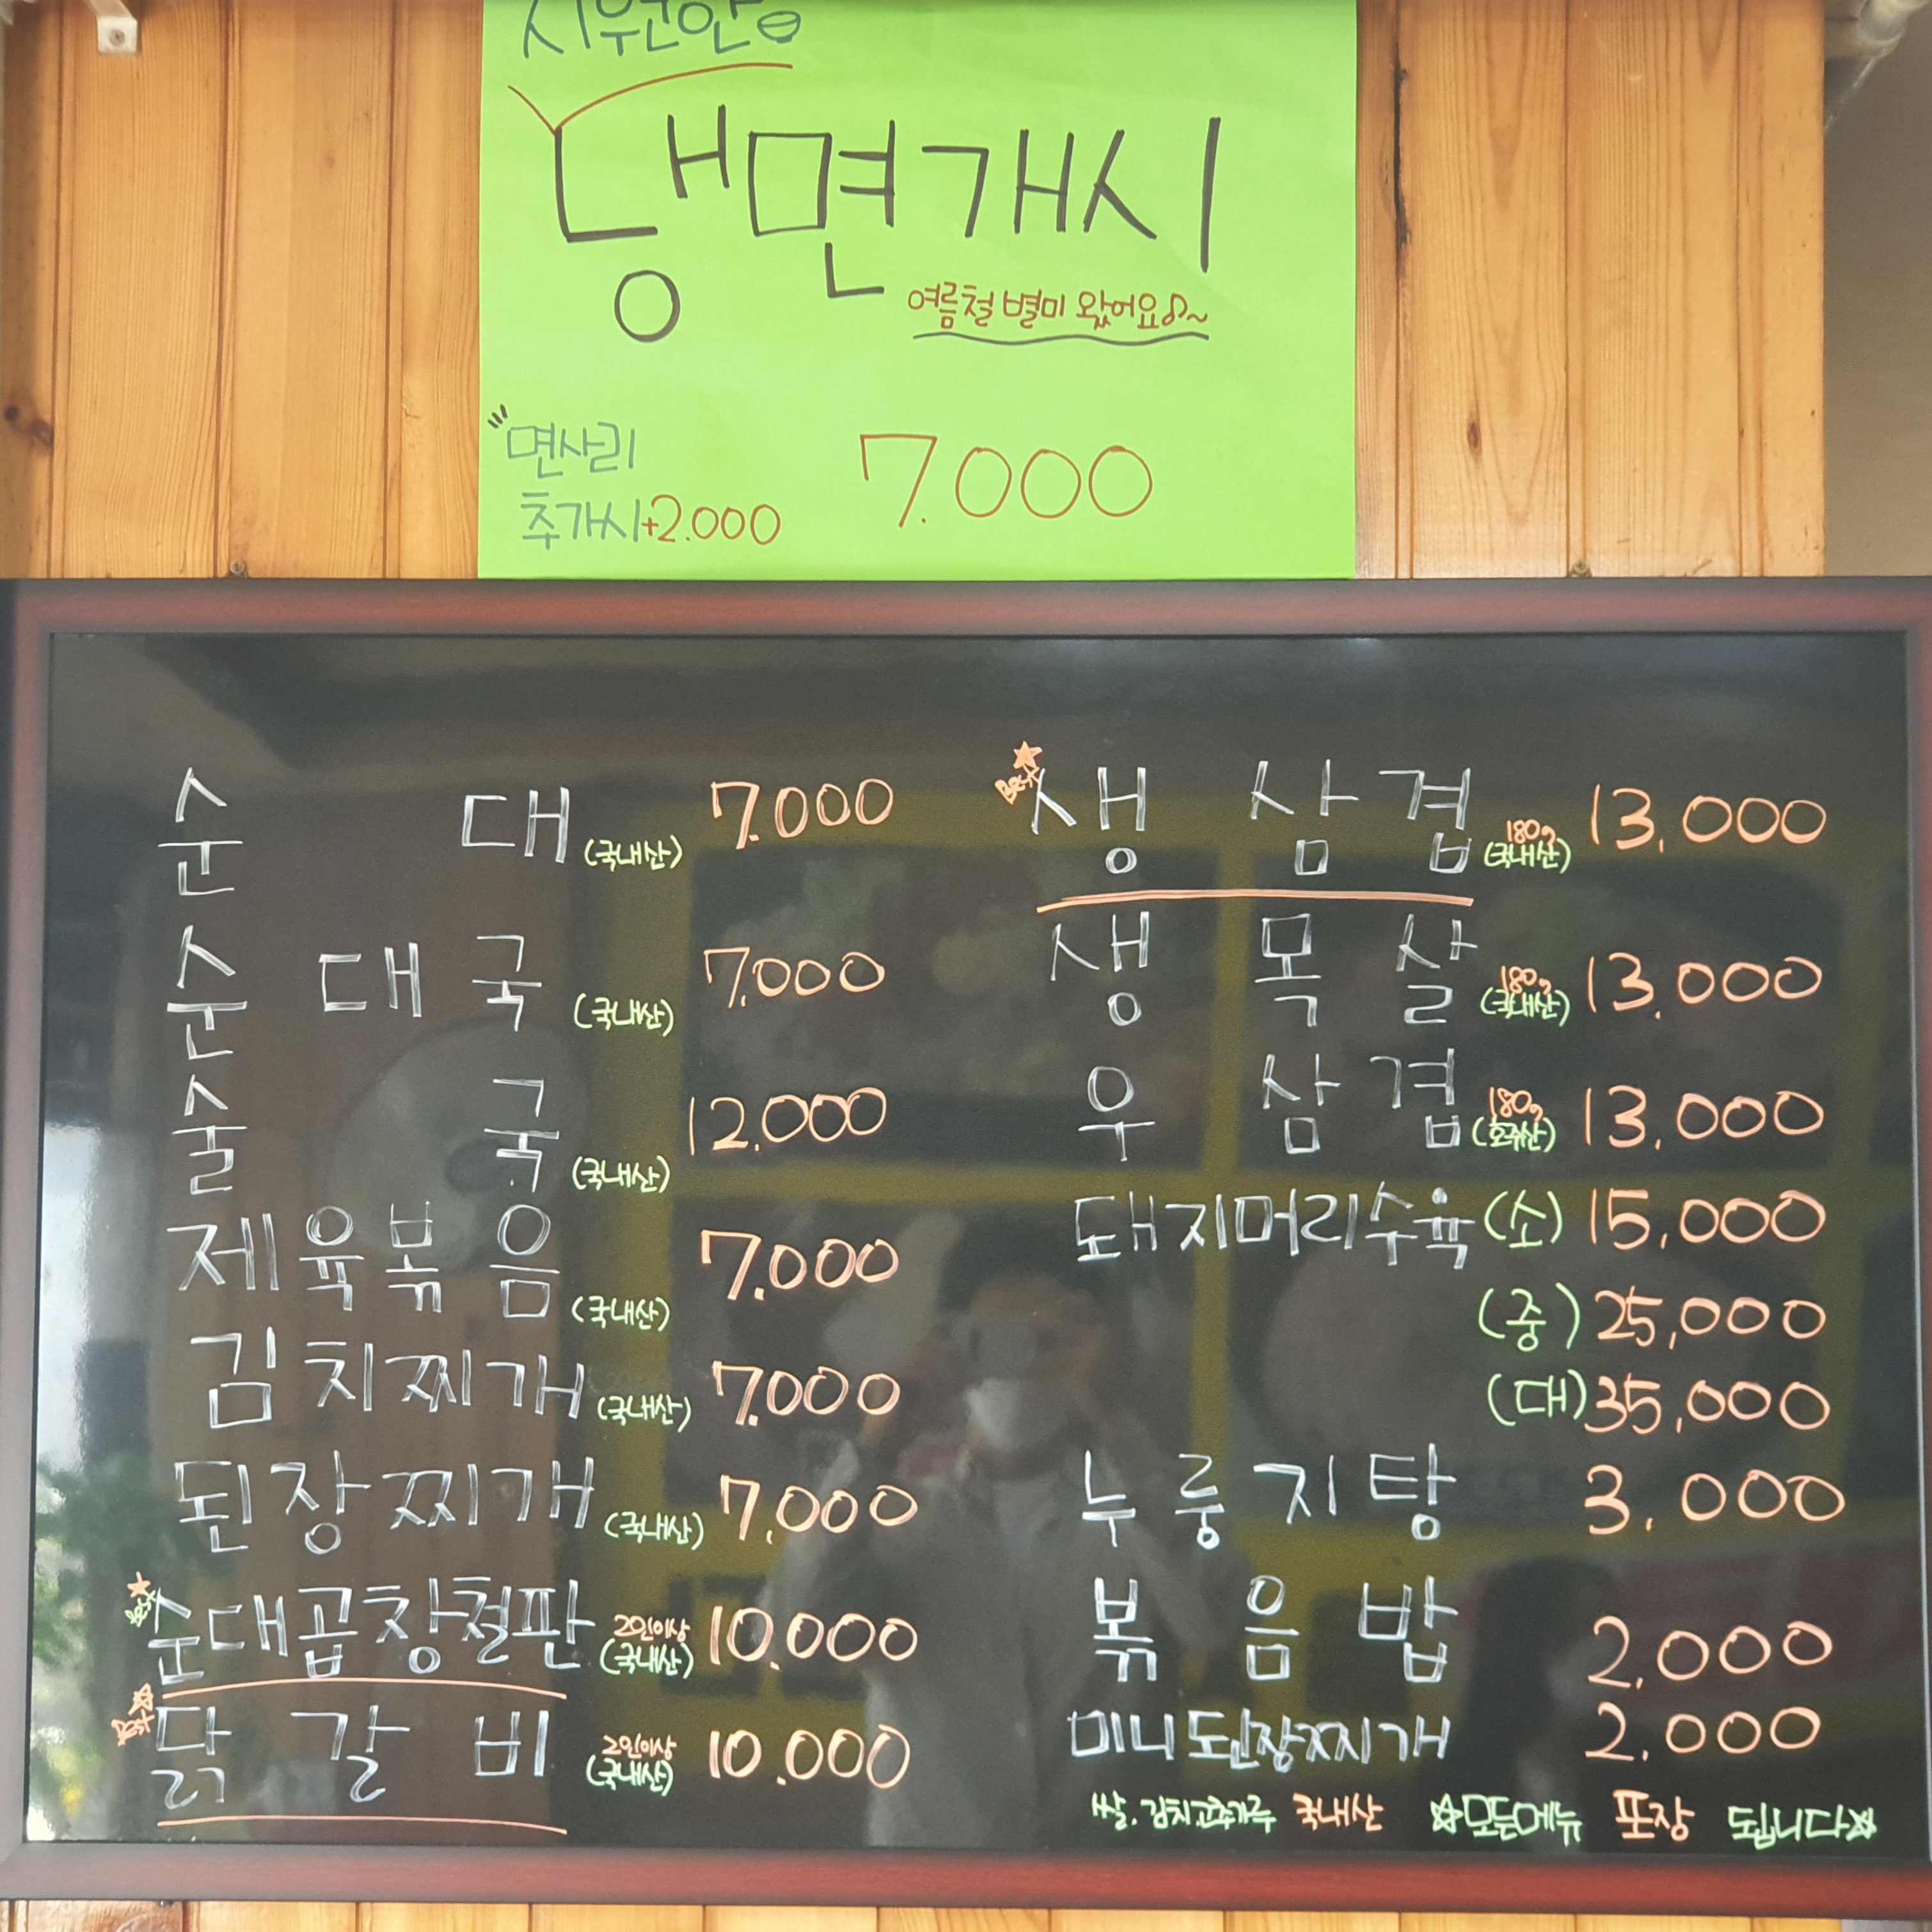 시원한
냉면개시
여름철 별미 왔어요~
면사리
추가시+2.000
7.000
순대 (국내산) 7.000
순대국 (국내산) 7.000
술국 (국내산) 12.000
제육볶음 (국내산) 7.000
김치찌개 (국내산) 7.000
된장찌개 (국내산) 7,000
Best 순대곱창철판 2인이상 (국내산) 10.000
Best 닭갈비 2인이상 (국내산) 10.000
Best 생삼겹 180g (국내산) 13,000
생목살 180g (국내산) 13.000
우삼겹 180g (호주산) 13,000
돼지머리수육 (소) 15,000
(중) 25,000
(대) 35,000
누룽지탕 3.000
볶음밥 2,000
미니된장찌개 2.000
쌀.김치.고추가루 국내산 ☆모든메뉴 포장 됩니다☆